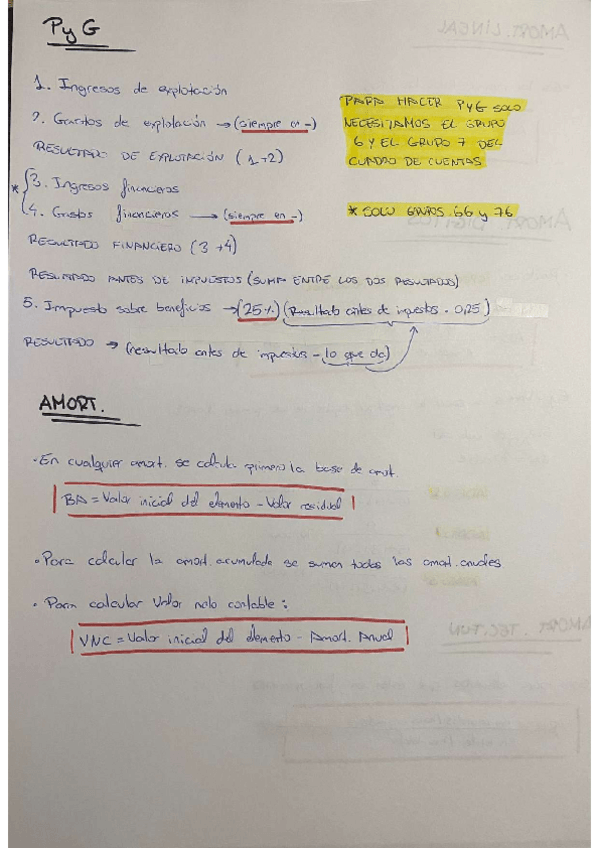 PyG
1. Ingresos de explotación
2. Gastos de explotación → (siempre en -)
RESULTADO DE EXPLOTACIÓN (1+2)
* 3. Ingresos financieros
4. Gastos financieros → (siempre en -)
RESULTADO FINANCIERO (3+4)
RESULTADO ANTES DE IMPUESTOS (SUMA ENTRE LOS DOS RESULTADOS)
5. Impuesto sobre beneficios → (25%) (Resultado antes de impuestos · 0,25)
RESULTADO → (resultado antes de impuestos - lo que da)
PARA HACER PYG SOLO
NECESITAMOS EL GRUPO
6 Y EL GRUPO 7 DEL
CUADRO DE CUENTAS
* SOLO GRUPOS 66 y 76
AMORT.
· En cualquier amort. se calcula primero la base de amort.
BA = Valor inicial del elemento - Valor residual
· Para calcular la amort. acumulada se suman todas las amort. anuales
· Para calcular Valor neto contable:
VNC = Valor inicial del elemento - Amort. Anual
AMORT. LINEAL
AMORT. DIGITOS
AMORT. TEC. FUN